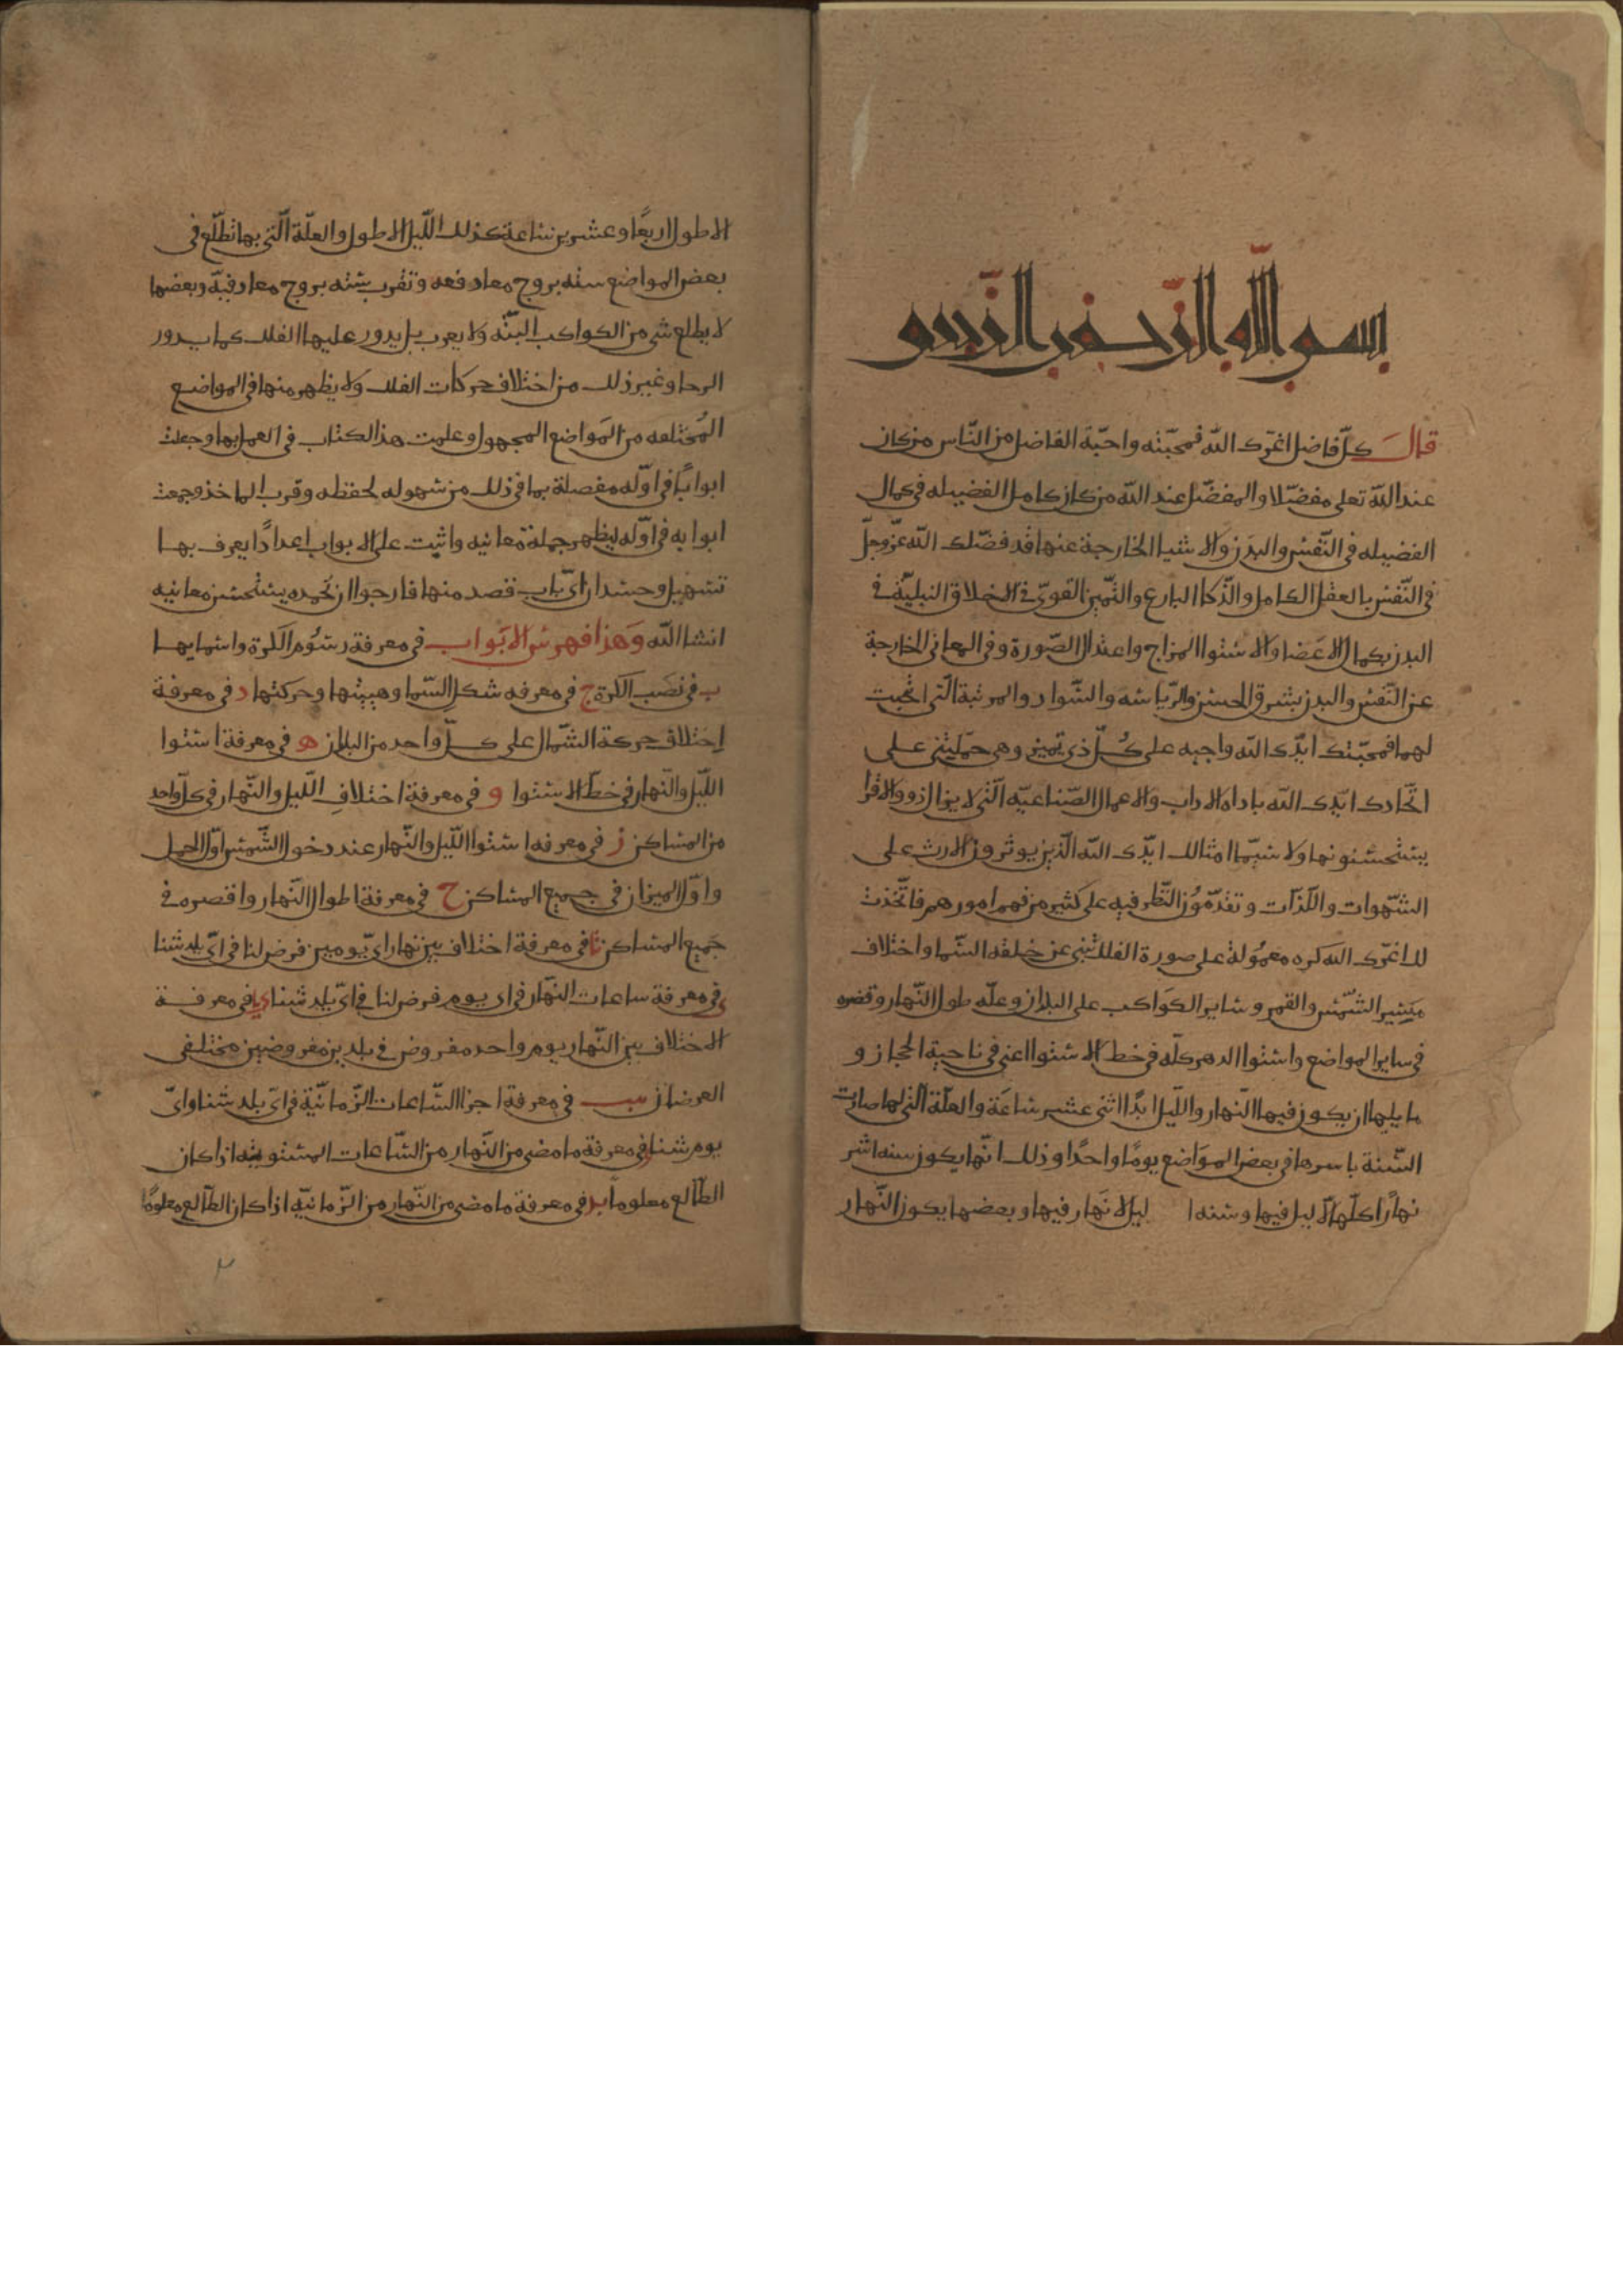 بسم الله الرحمن الرحيم
قال كلّ فاضل اعزّك الله فمحبّته واحبّة الفاضل من النّاس من كان
عند الله تعلى مفضّلا والمفضّل عند الله من كان كامل الفضيله في كمال
الفضيله في النّفس والبدن والاشيا الخارجة عنها قد فضّلك الله عزّ وجلّ
في النّفس بالعقل الكامل والذّكا البارع والتّميز القويّ في الاخلاق النبليّة في
البدن بكمال الاعضا والاستوا المزاج واعتدال الصّورة وفي المعاني الخارجة
عن النّفس والبدن بشرق الحسن والرّياسه والسّوادد والمرتبة الّتي
لهما فمحبّتك ايّدك الله واجبه على كلّ ذي تميز وهي حمّلتني على
اتّحادك ايّدك الله باداه الاداب والاعمال الصّناعيّه الّتي لا يزال ذوو
يستحسنونها ولا سيّما امثالك ايّدك الله الّذين يوثرون الارث على
الشّهوات واللّذّات وتقدّموا النّظر فيه على كثير من فهم امورهم فاتّخذت
لك اعزّك الله كره معمولة على صورة الفلك تنبي عن خلقه السّما واختلاف
مسير الشّمس والقمر وساير الكواكب على البلدان وعلّه طول النّهار وقصره
في ساير المواضع واستوا الدهر كلّه في خط الاستوا اعني في ناحية الحجاز و
ما يليها ان يكون فيها النّهار واللّيل ابدًا اثنى عشر ساعة والعلّة الّتي لها صارت
السّنة باسرها في بعض المواضع يومًا واحدًا وذلك انّها يكون ستة اشر
نهارًا كلّها لا ليل فيها وستة ا ليل لا نهار فيها وبعضها يكون النّهار
الاطول اربعًا وعشرين ساعة كذلك اللّيل الاطول والعلّة الّتي بها تطّلع في
بعض المواضع سته بروج معا دفعه وتغرب سته بروج معا دفيه وبعضها
لا يطلع شي من الكواكب البتّه ولا يعرب بل يدور عليها الفلك كما يدور
الرحا وغير ذلك من اختلاف حركات الفلك ولا يظهر منها في المواضع
المختلفه من المواضع المجهول وعلمت هذ الكتاب في العمل بها وجعلت
ابوابًا في اوّله مفصلة بما في ذلك من سهوله لحفظه وقرب الماخذ وجمعت
ابوابه في اوّله ليظهر جملة معانيه واثبت على الابواب اعدادًا يعرف بها
تسهيل وحسد ايّ باب قصد منها فارجوا ان تحمده يستحسن معانيه
انشا الله وهذا فهرس الابواب في معرفة رسوم الكرة واسمايها
ب في نصب الكرة ج في معرفه شكل السّما وهيئتها وحركتها د في معرفة
اختلاف حركة الشّمال على كلّ واحد من البلدان ه في معرفة استوا
اللّيل والنّهار في خطّ الاستوا و في معرفة اختلاف اللّيل والنّهار في كلّ واحد
من المساكن ز في معرفه استوا اللّيل والنّهار عند دخول الشّمس اوّل الحمل
واوّل الميزان في جميع المساكن ح في معرفة اطوال النّهار واقصره في
جميع المساكن ط في معرفة اختلاف بين نهار ايّ يومين فرض لنا في ايّ بلد شئنا
ي في معرفة ساعات النّهار في اي يوم فرض لنا في ايّ بلد شئنا يا في معرفة
الاختلاف بين النّهار يوم واحد مفروض في بلدين مفروضين مختلفي
العرضان يب في معرفة اجزا السّاعات الزّمانيّة في ايّ بلد شئنا وايّ
يوم شئنا في معرفة ما مضى من النّهار من السّاعات المستويه اذا كان
الطّالع معلومًا يد في معرفة ما مضى من النّهار من الزّمانيّه اذا كان الطّالع معلومًا